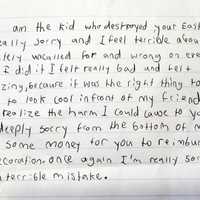 am the kid who destroyed your East
really sorry and I feel terrible abou
tely uncalled for and wrong on eve
I did it I felt really bad and left
zing, because it was the right thing to
to look cool infront of my friend
realize the harm I could cause to yo
deeply sorry from the bottom of m
some money for you to reimbu
ecoration. once again I'm really sor
terrible mistake.